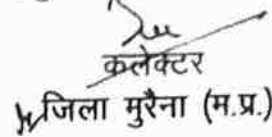 कलेक्टर
जिला मुरैना (म.प्र.)